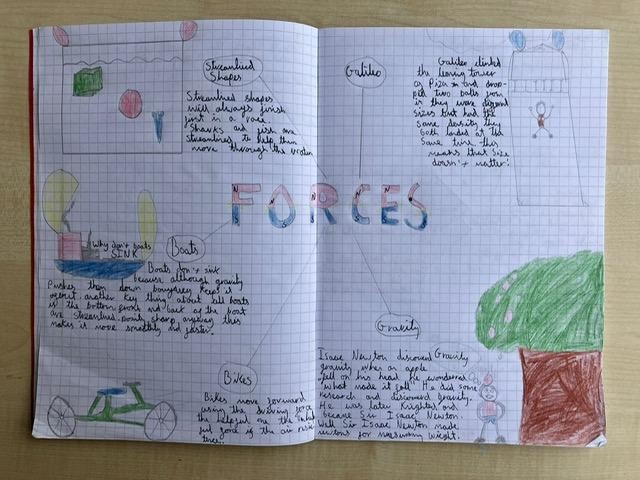 Streamlined
Shapes
Streamlined shapes
will always finish
first in a race.
Sharks and fish are
streamlined to help them
move through the water
Galileo
Galileo climbed
the leaning tower
of Piza and drop-
ped two balls
is they were
sizes but had the
same density they
both landed at the
same time this
means that size
doesn't matter!
FORCES
N S N S N S
Why don't boats
SINK
Boats
Boats don't sink
because although gravity
Pushes them down bouyancy keeps it
upright another key thing about all boats
is the bottom front and back of the boat
are streamlined points sharp anyway this
makes it move smoothly and faster.
Gravity
Isaac Newton discovered Gravity
gravity when an apple
fell on his head he wondered
what made it fall He did some
research and discovered gravity.
He was later Knighted and
became Sir Isaac Newton
Well Sir Isaac Newton made
newtons for measuring wieght.
Bikes
Bikes move forward
using the driving force
the helpful one the
ful force is the air resis
tance.